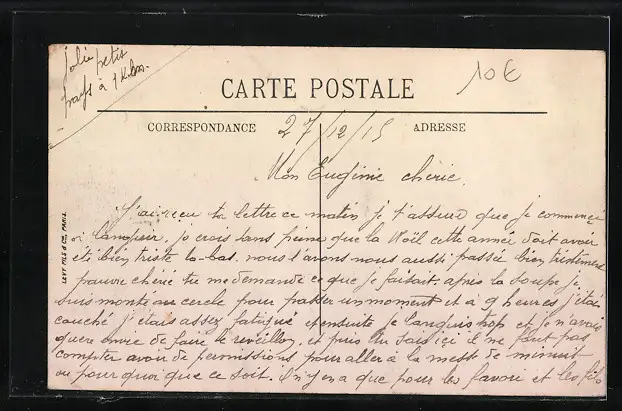 jolie petis
pays à 1 Klm.
10 €
CARTE POSTALE
CORRESPONDANCE
ADRESSE
27/12/15
Mon Eugénie chérie.
J'ai reçu ta lettre ce matin je t'assure que je commencé
à languir, je crois sans peine que la Noël cette année doit avoir
été bien triste la-bas. nous l'avons nous aussi passée bien tristement
pauvre chérie tu me demande ce que je faisait, après la soupe je
suis monté au cercle pour passer un moment et a 9 heures j'étai
couché j'étais assez fatigué et ensuite je languis trop et je n'avais
guère envie de faire le réveillon, et puis tu sais ici il ne faut pas
compter avoir de permissions pour aller à la messe de minuit
ou pour quoi que ce soit. il n'y en a que pour les favori et les fils
LEVY FILS & Cie, PARIS.